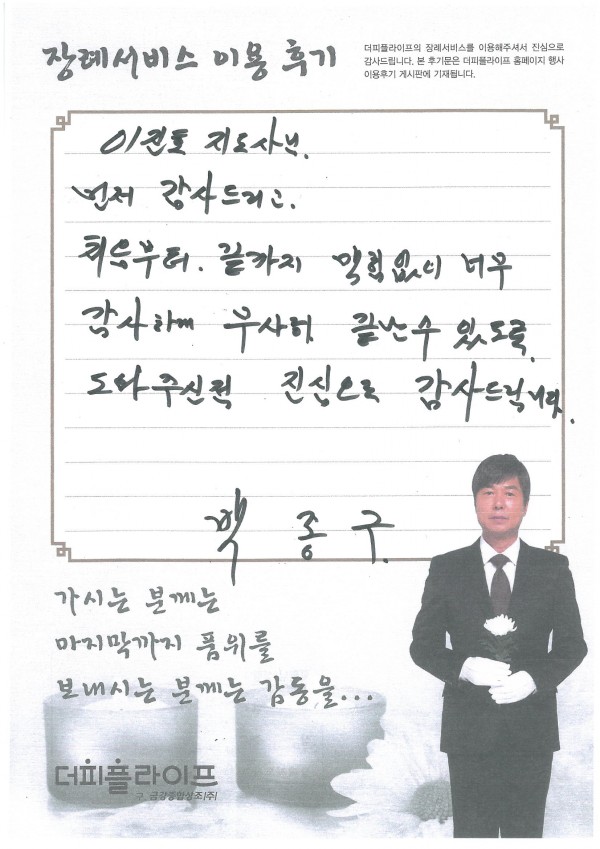 장례서비스 이용 후기
더피플라이프의 장례서비스를 이용해주셔서 진심으로
감사드립니다. 본 후기문은 더피플라이프 홈페이지 행사
이용후기 게시판에 기재됩니다.
이권호 지도사님.
먼저 감사드리고.
처음부터. 끝까지 막힘없이 너무
감사하며 무사히 끝난수 있도록.
도와주신점 진심으로 감사드립니다.
백종구
가시는 분께는
마지막까지 품위를
보내시는 분께는 감동을...
더피플라이프
구. 금강종합상조(주)